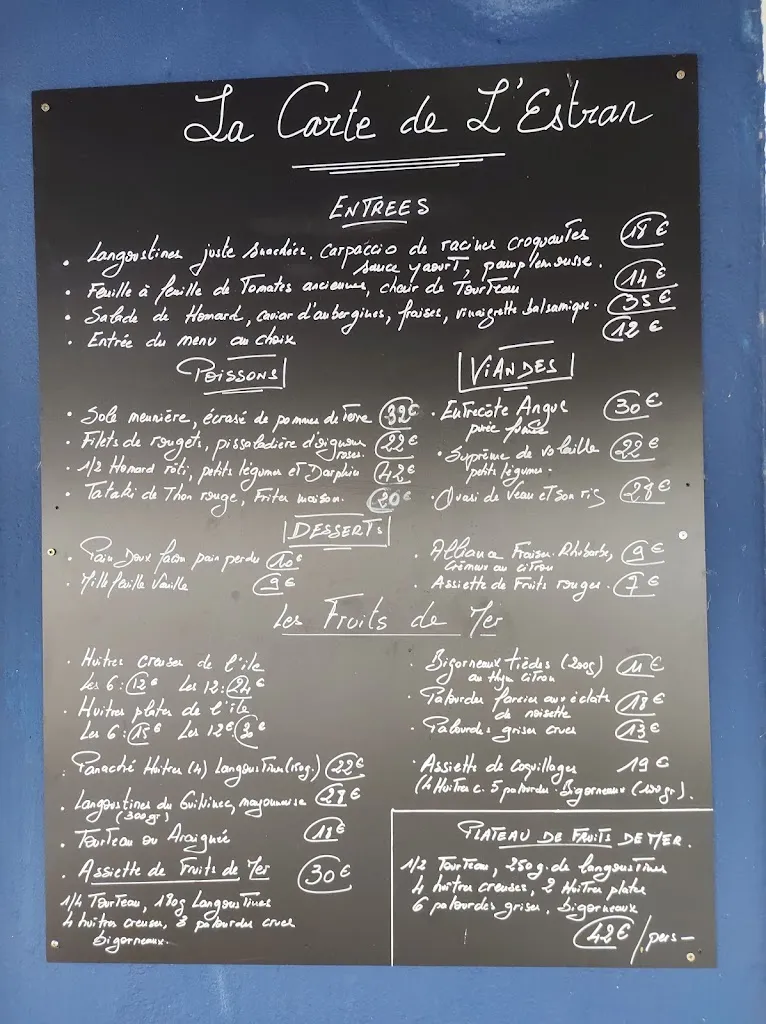 La Carte de L'Estran
ENTREES
. Langoustines juste snackées, carpaccio de racines croquantes
sauce yaourt, pamplemousse. 18€
. Feuille à feuille de Tomates anciennes, chair de Tourteau 14€
. Salade de Homard, caviar d'aubergines, fraises, vinaigrette balsamique. 35€
. Entrée du menu au choix 12€
POISSONS
. Sole meunière, écrasé de pommes de Terre 32€
. Filets de rougets, pissaladière d'oignons
roses. 22€
. 1/2 Homard rôti, petits légumes et Darphin 42€
. Tataki de Thon rouge, Frites maison. 20€
VIANDES
. Entrecôte Angus 30€
purée fumée
. Suprême de volaille 22€
petits légumes.
. Quasi de Veau et son ris
DESSERTS
. Pain Doux façon pain perdu 10€
. Mille feuille Vanille 9€
. Fraises. Rhubarbe, 9€
Crémeux au citron
. Assiette de Fruits rouges. 7€
Les Fruits de Mer
. Huîtres creuses de l'île
Les 6: 12€ Les 12: 24€
. Huitres plates de l'île
Les 6: 15€ Les 12€
. Panaché Huitres (4) Langoustines (150g.) 22€
. Langoustines du Guilvinec, mayonnaise
(300gr)
. Tourteau ou Araignée 18€
. Assiette de Fruits de Mer 30€
1/4 Tourteau, 180g Langoustines
4 huîtres creuses, 3 palourdes crues
bigorneaux.
. Bigorneaux tièdes (200g) 11€
au thym citron
. Palourdes farcies aux éclats 18€
de noisette
. Palourdes grises crues 13€
. Assiette de Coquillages 19€
(4 Huitres c. 5 palourdes. Bigorneaux (100gr).
PLATEAU DE FRUITS DE MER.
1/2 Tourteau, 250g. de langoustines
4 huîtres creuses, 2 Huitres plates
6 palourdes grises, bigorneaux
42€/pers-